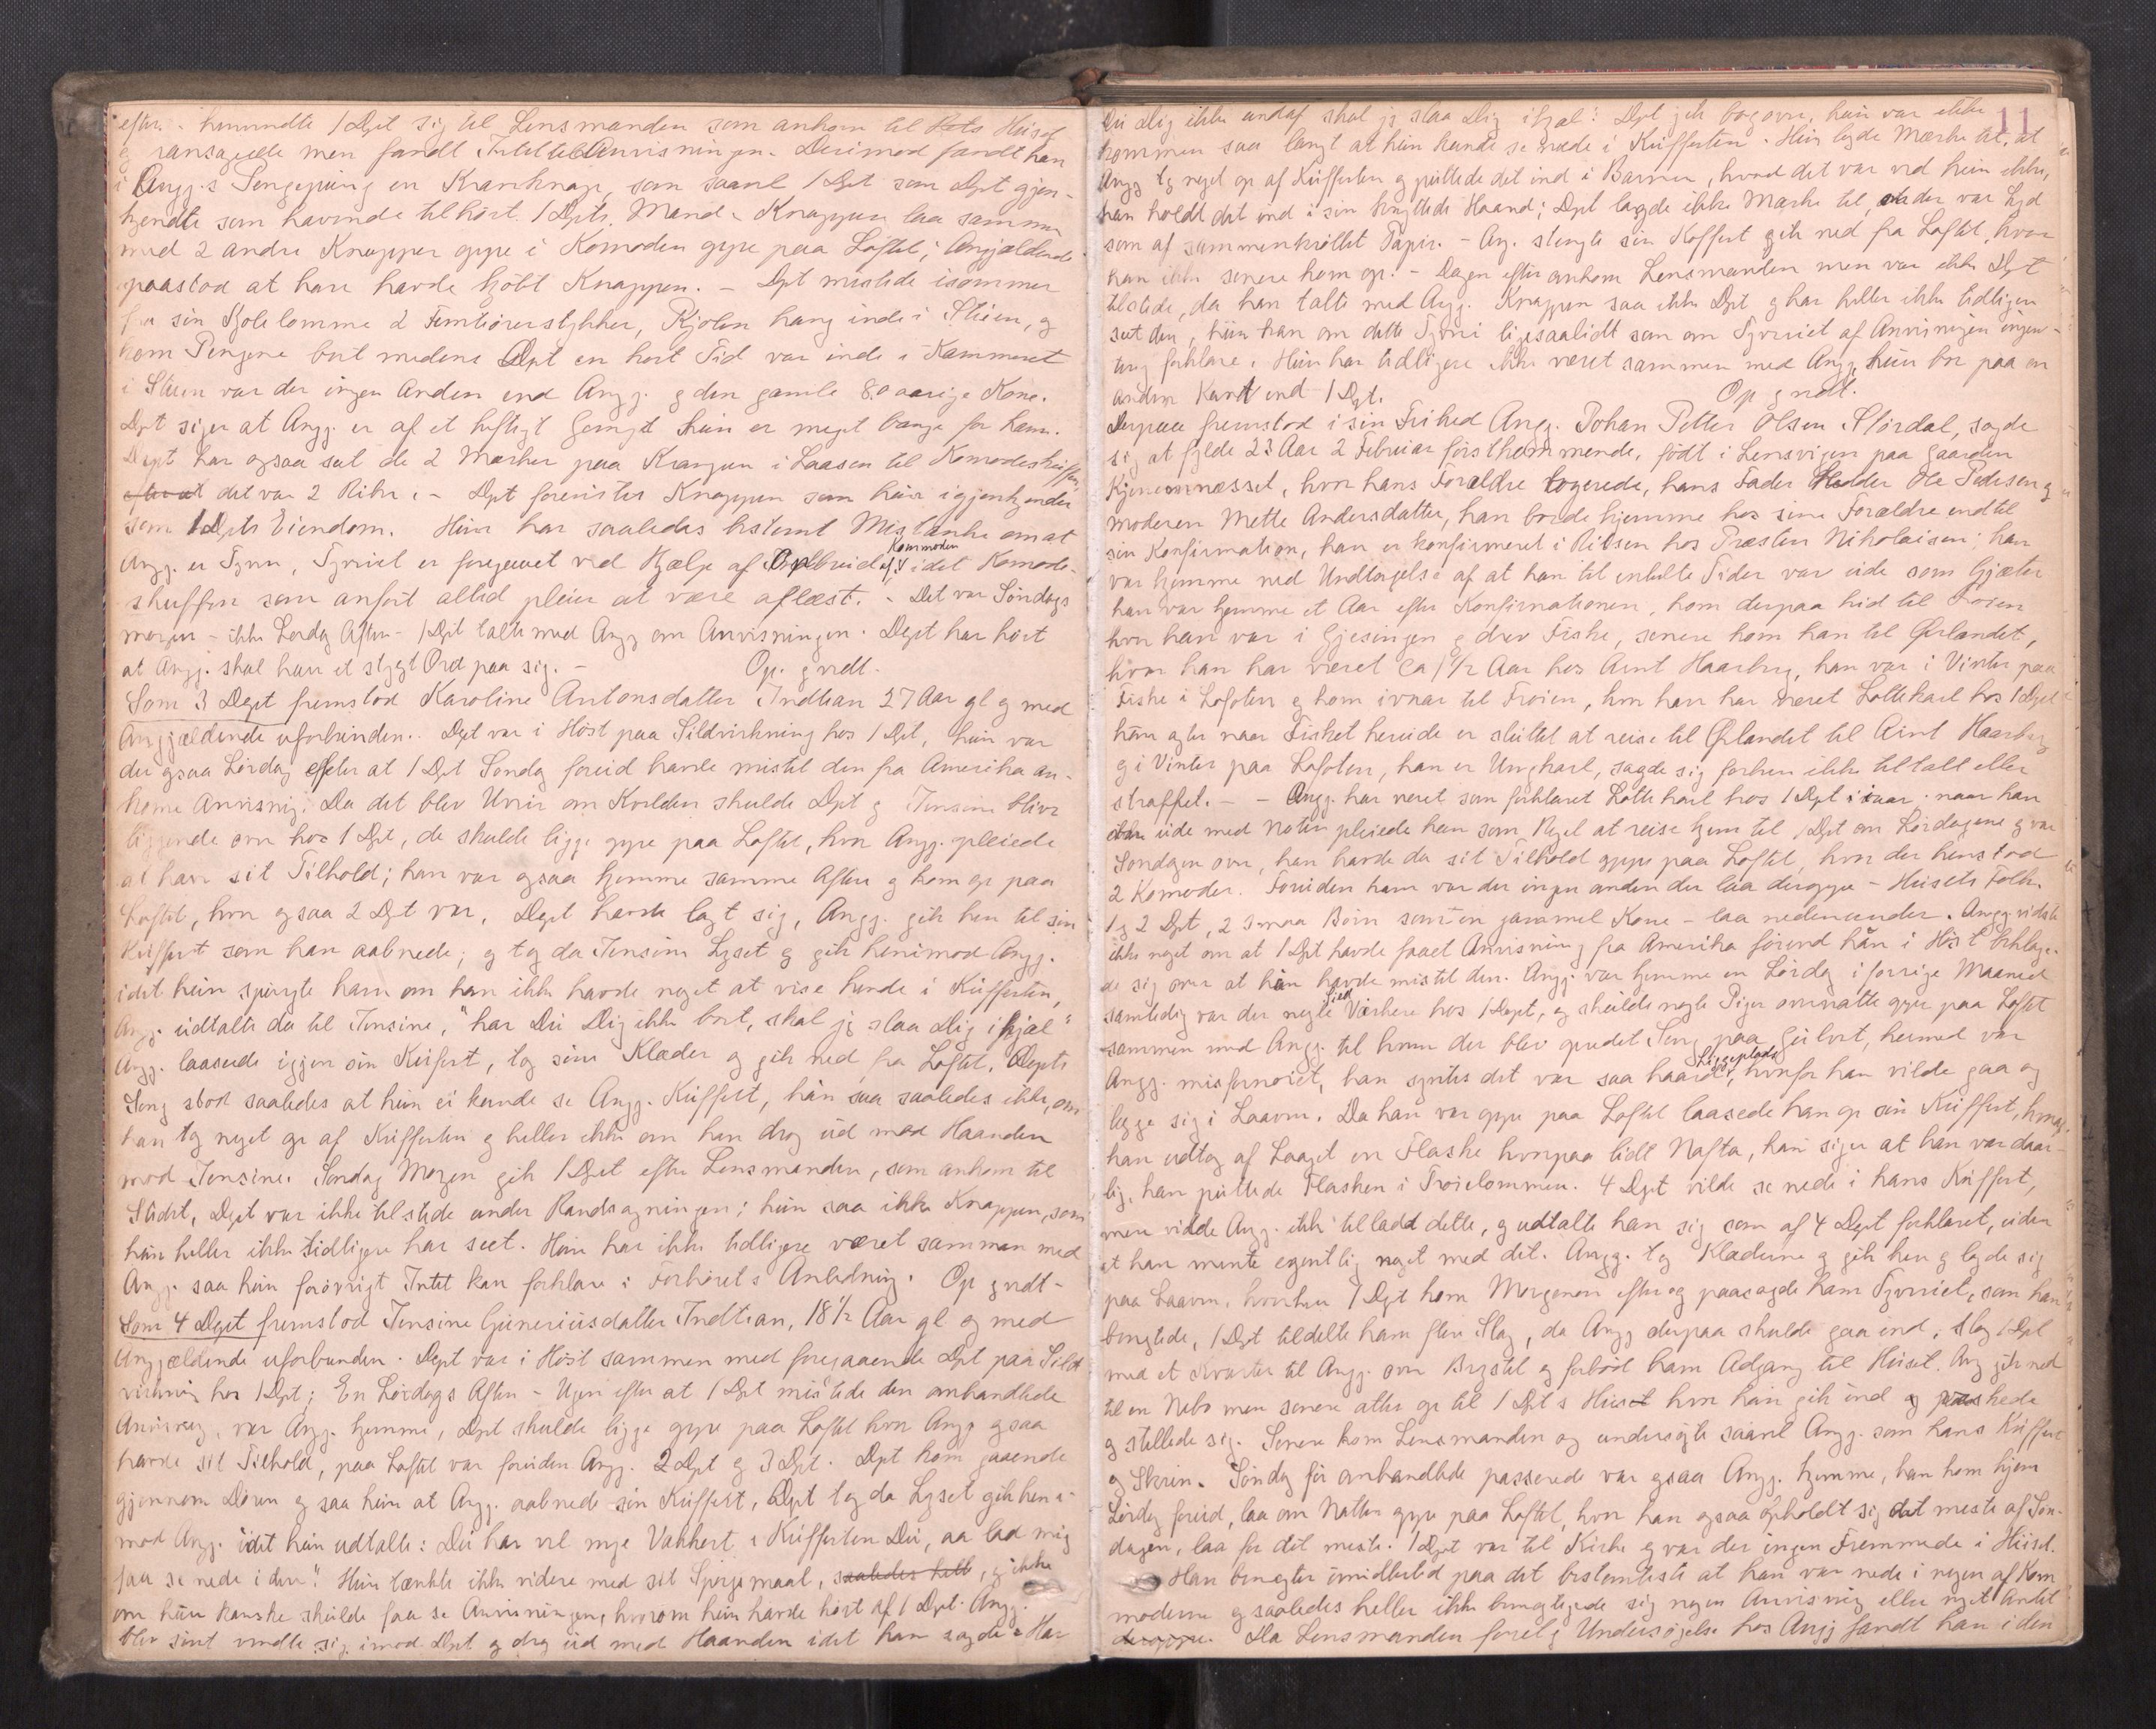 efter - henvendte 1 Dept sig til Lensmanden som ankom til Hets Huset
og ransagede men fandt Intet til Anvisningen. Derimod fandt han
i Angj.s Pengepung en Kraveknap, som saavel 1 Dept som Dept gjen-
kjendte som havende tilhört 1 Depts. Mand. Knappen laa sammen
med 2 andre Knapper oppe i Komoden oppe paa Loftet; Angjældende
paastod at han havde kjöbt Knappen. - Dept mistede isommer
fra sin Kjolelomme 2 Femtiörerstykker, Kjolen hang inde i Stuen, og
kom Pengene bort medens Dept en kort Tid var inde i Kammeret
i Stuen var der ingen Anden end Angj. og den gamle 80 aarige Kone.
Dept siger at Angj. er af et heftigt Gemyt hun er meget bange for ham.
Dept har ogsaa seet de 2 Mærker paa Krampen i Laasen til Komodeskuffen,
det var 2 Riber. - Dept forevistes Knappen som hun igjenkjender
som 1 Depts Eiendom. Hun har saaledes bestemt Mistanke om at
Angj. er Tyven, Tyveriet er foregaaet ved Hjælp af Opbrud af Kommoden idet Komode-
skuffen som anfört altid pleier at være aflæst. - Det var Söndags
morgen - ikke Lördag Aften - 1 Dept talte med Angj om Anvisningen. Dept har hört
at Angj. skal have et stygt Ord paa sig. - Op. g vedt.
Som 3 Dept fremstod Karoline Antonsdatter Indtian 27 Aar gl og med
Angjældende uforbunden. Dept var i Höst paa Sildvirkning hos 1 Dept, hun var
der ogsaa Lördag efter at 1 Dept Söndag forud havde mistet den fra Amerika an-
komne Anvisning. Da det blev Uveir om Kvelden skulde Dept og Jensine blive
liggende over hos 1 Dept, de skulde ligge oppe paa Loftet, hvor Angj. pleiede
at have sit Tilhold; han var ogsaa hjemme samme Aften og kom op paa
Loftet, hvor ogsaa 2 Dept var. Dept havde lagt sig, Angj. gik hen til sin
Kuffert som han aabnede; og tog da Jensine Lyset og gik henimod Angj.
idet hun spurgte ham om han ikke havde noget at vise hende i Kufferten,
Angj. udtalte da til Jensine, "har Du Dig ikke bort, skal jeg slaa Dig ihjæl"
Angj. laasede igjen sin Kufert, tog sine Klæder og gik ned fra Loftet. Depts
Seng stod saaledes at hun ei kunde se Angj. Kuffert, hun saa saaledes ikke, om
han tog noget op af Kufferten og heller ikke om han drog ud med Haanden
mod Jensine. Söndag Morgen gik 1 Dept efter Lensmanden, som ankom til
Stedet, Dept var ikke tilstede under Randsagningen; hun saa ikke Knappen, som
hun heller ikke tidligere har seet. Hun har ikke tidligere været sammen med
Angj. saa hun forövrigt Intet kan forklare i Forhörets Anledning. Op g vedt-
Som 4 Dept fremstod Jensine Guneriusdatter Indtian, 18½ Aar gl og med
Angjældende uforbunden. Dept var i Höst sammen med foregaaende Dept paa Sild
virkning hos 1 Dept; En Lördags Aften - Ugen efter at 1 Dept mistede den omhandlede
Anvisning, var Angj. hjemme, Dept skulde ligge oppe paa Loftet hvor Angj ogsaa
havde sit Tilhold, paa Loftet var foruden Angj. 2 Dept og 3 Dept. Dept kom gaaende
gjennem Dören og saa hun at Angj. aabnede sin Kuffert, Dept tog da Lyset gik hen i-
mod Angj. idet hun udtalte: Du har vel mye Vakkert i Kufferten Du, aa lad mig
faa se nede i den". Hun tænkte ikke videre med sit Spörgsmaal, saaledes heller, og ikke
om hun kanske skulde faa se Anvisningen, hvorom hun havde hört af 1 Dept. Angj.
blev sint vendte sig imod Dept og drog ud med Haanden idet han sagde "Har
Du Dig ikke undaf skal jeg slaa Dig ihjæl". Dept gik bagover, hun var ikke
kommen saa langt at hun kunde se nede i Kufferten. Hun lagde Mærke til, at
Angj tog noget op af Kufferten og puttede det ind i Barmen, hvad det var ved hun ikke,
han holdt det ind i sin knyttede Haand; Dept lagde ikke Mærke til, om der var Lyd
som af sammenkröllet Papir. - Ang. stengte sin Koffert gik ned fra Loftet, hvor
han ikke senere kom op. - Dagen efter ankom Lensmanden men var ikke Dept
tilstede, da han talte med Angj. Knappen saa ikke Dept og har heller ikke tidligere
seet den, hun kan om dette Tyveri ligesaalidt som om Tyveriet af Anvisningen ingen-
ting forklare. Hun har tidligere ikke været sammen med Angj, hun bor paa en
anden Kant end 1 Dept. Op g vedt.
Derpaa fremstod i sin Frihed Angj. Johan Petter Olsen Stördal, sagde
sig at fylde 23 Aar 2 Februar förstkommende, födt i Lensvigen paa Gaarden
Kjönemnæsset, hvor hans Forældre logerede, hans Fader Hedder Ole Pedersen og
moderen Mette Andersdatter, han boede hjemme hos sine Forældre indtil
sin Konfirmation, han er konfirmeret i Rissen hos Præsten Nikolaisen; han
var hjemme med Undtagelse af at han til enkelte Tider var ude som Gjæter
han var hjemme et Aar efter Konfirmationen, kom derpaa hid til Froien
hvor han var i Gjesingen og drev Fiske, senere kom han til Ørlandet,
hvor han har været ca 1½ Aar hos Arnt Haarberg, han var i Vinter paa
Fiske i Lofoten og kom ivaar til Froien, hvor han har været Lottekarl hos 1 Dept
han agter naar Fisket herude er sluttet at reise til Ørlandet til Arnt Haarberg
og i Vinter paa Lofoten, han er Ungkarl, sagde sig forhen ikke tiltalt eller
straffet. - - Angj. har været som forklaret Lottekarl hos 1 Dept i aar; naar han
var ude med Noten pleiede han som Regel at reise hjem til 1 Dept om Lördagene og var
Söndagen over, han havde da sit Tilhold oppe paa Loftet, hvor der henstod
2 Komoder. Foruden ham var der ingen anden der laa deroppe - Husets Folk.
1 og 2 Dept, 2 smaa Börn samt en gammel Kone - laa nedenunder. Angj vidste
ikke noget om at 1 Dept havde faaet Anvisning fra Amerika förend hun i Höst beklage-
de sig over at hun havde mistet den. Angj. var hjemme en Lördag i forrige Maaned
samtidig var der nogle Sild Virkere hos 1 Dept, og skulde nogle Piger overnatte oppe paa Loftet
sammen med Angj. til hvem der blev opredet Seng paa Gulvet, hermed var
Angj. misfornöiet, han syntes det var saa haardt Liggeplads, hvorfor han vilde gaa og
lægge sig i Laaven. Da han var oppe paa Loftet laasede han op sin Kuffert, hvoraf
han udtog af Laaget en Flaske hvorpaa lidt Nafta, han siger at han var daar-
lig, han puttede Flasken i Tröielommen. 4 Dept vilde se nede i hans Kuffert,
men vilde Angj. ikke tilladt dette, og udtalte han sig som af 4 Dept forklaret, uden
at han mente egentlig noget med det. Angj. tog Klæderne og gik hen og lagde sig
paa Laaven, hvorhen 1 Dept kom Morgenen efter og paasagde ham Tyveriet, som han
benegtede, 1 Dept tildelte ham flere Slag, da Angj derpaa skulde gaa ind, slog 1 Dept
med et Kvarter til Angj. over Brystet og forböd ham Adgang til Huset. Ang gik ned
til en Nabo men senere atter op til 1 Dept s Huset hvor han gik ind og vaskede
og stellede sig. Senere kom Lensmanden og undersögte saavel Angj. som hans Kuffert
og Skrin. Söndag för omhandlede passerede var ogsaa Angj. hjemme, han kom hjem
Lördag forud, laa om Natten oppe paa Loftet, hvor han ogsaa opholdt sig det meste af Sön-
dagen, laa for det meste. 1 Dept var til Kirke og var der ingen Fremmede i Huset.
Han benegter imidlertid paa det bestemteste at han var nede i nogen af Kom
moderne og saaledes heller ikke bemægtigede sig nogen Anvisning eller noget Andet
deroppe. Da Lensmanden foretog Undersögelse hos Angj fandt han i den
11